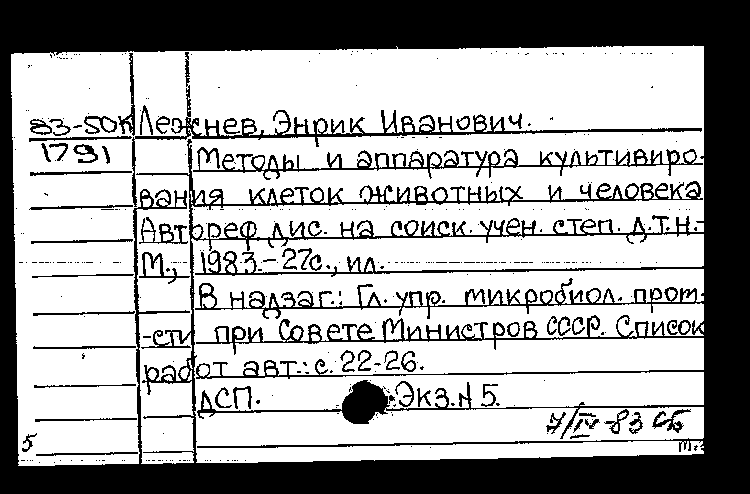 83-50К Лежнев, Энрик Иванович.
1791 Методы и аппаратура культивиро-
вания клеток животных и человека
Автореф. дис. на соиск. учен. степ. д.т.н.-
М., 1983.-27с., ил.
В надзаг.: Гл. упр. микробиол. пром-
-сти при Совете Министров СССР. Список
работ авт.: с. 22-26.
ДСП. Экз.№ 5.
7/IV-83 СБ
5